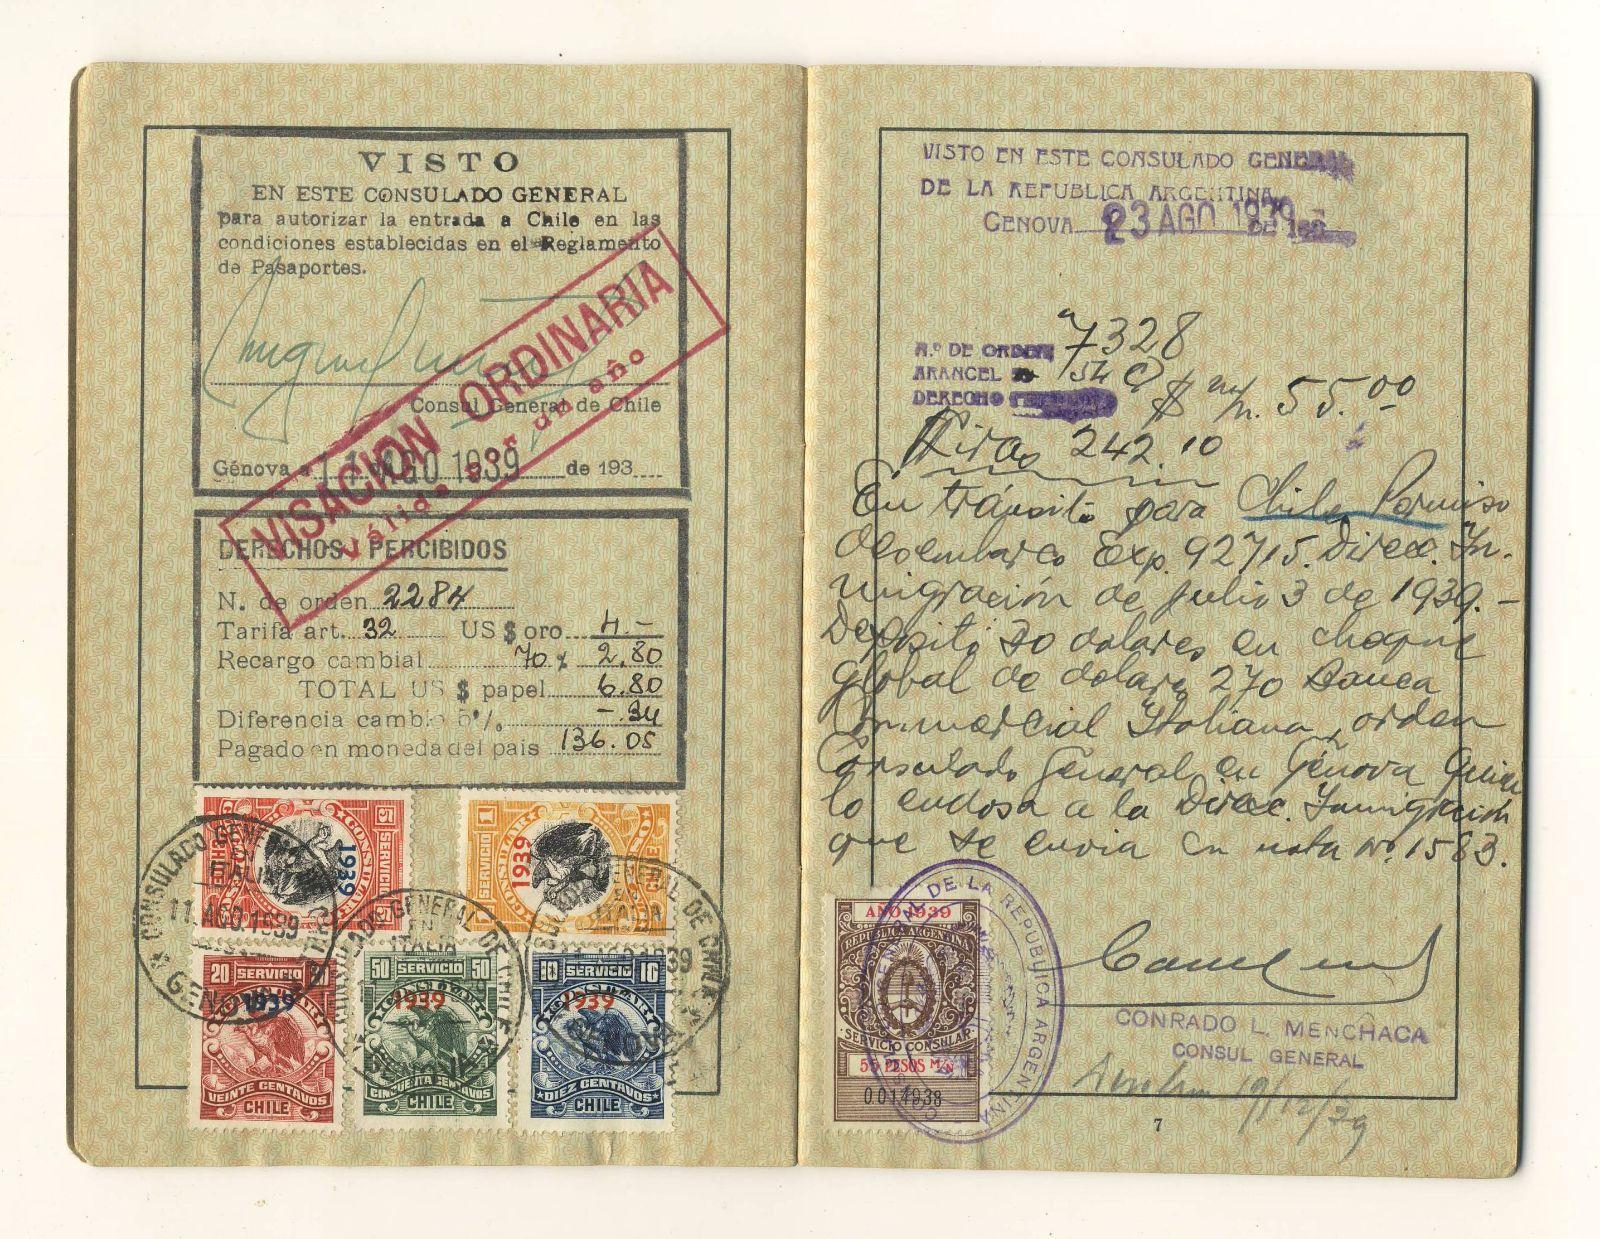 VISTO
EN ESTE CONSULADO GENERAL
para autorizar la entrada a Chile en las
condiciones establecidas en el Reglamento
de Pasaportes.
Consul General de Chile
Génova a 11 AGO 1939 de 193
VISACION ORDINARIA
Válida por un año
DERECHOS PERCIBIDOS
N. de orden 2284
Tarifa art. 32 US $ oro 4.-
Recargo cambial 70 % 2.80
TOTAL US $ papel 6.80
Diferencia cambio 5% -.34
Pagado en moneda del pais 136.05
5 SERVICIO 5
CONSULAR
CHILE
1939
1 SERVICIO 1
CONSULAR
CHILE
1939
CONSULADO GENERAL DE CHILE
EN
ITALIA
11 AGO 1939
GENOVA
20 SERVICIO
1939
VEINTE CENTAVOS
CHILE
50 SERVICIO 50
CONSULAR
1939
CINCUENTA CENTAVOS
CHILE
CONSULADO GENERAL DE CHILE
EN
ITALIA
GENOVA
10 SERVICIO 10
CONSULAR
1939
DIEZ CENTAVOS
CHILE
GENERAL DE CHILE
ITALIA
GENOVA
VISTO EN ESTE CONSULADO GENERAL
DE LA REPUBLICA ARGENTINA
GENOVA 23 AGO 1939
N.º DE ORDEN 7328
ARANCEL 54
DERECHO $ m/n. 55.00
Liras 242.10
En tránsito para Chile Permiso
desembarco Exp. 92715. Direcc. In-
migración de julio 3 de 1939.-
Depositó 30 dolares en cheque
global de dolares 270 Banca
Commercial Italiana, orden
Consulado General en Génova quien
lo endosa a la Direcc. Inmigración
que se envia en nota Nº. 1583.
AÑO 1939
REPUBLICA ARGENTINA
SERVICIO CONSULAR
55 PESOS M/N
0014938
CONSULADO GENERAL DE LA REPUBLICA ARGENTINA
CONRADO L. MENCHACA
CONSUL GENERAL
19/12/39
7